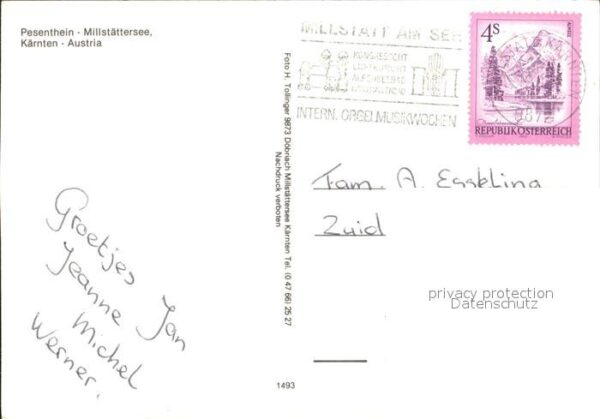 Pesenthein · Millstättersee,
Kärnten · Austria
Groetjes Jan
Jeanne
Michel
Werner.
Foto H. Tollinger 9873 Döbriach Millstättersee Kärnten Tel. (0 47 66) 25 27
Nachdruck verboten
1493
MILLSTATT AM SEE
INTERN. ORGELMUSIKWOCHEN
4S
ALMSEE
REPUBLIK ÖSTERREICH
Fam. A. Esselina
Zuid
privacy protection
Datenschutz